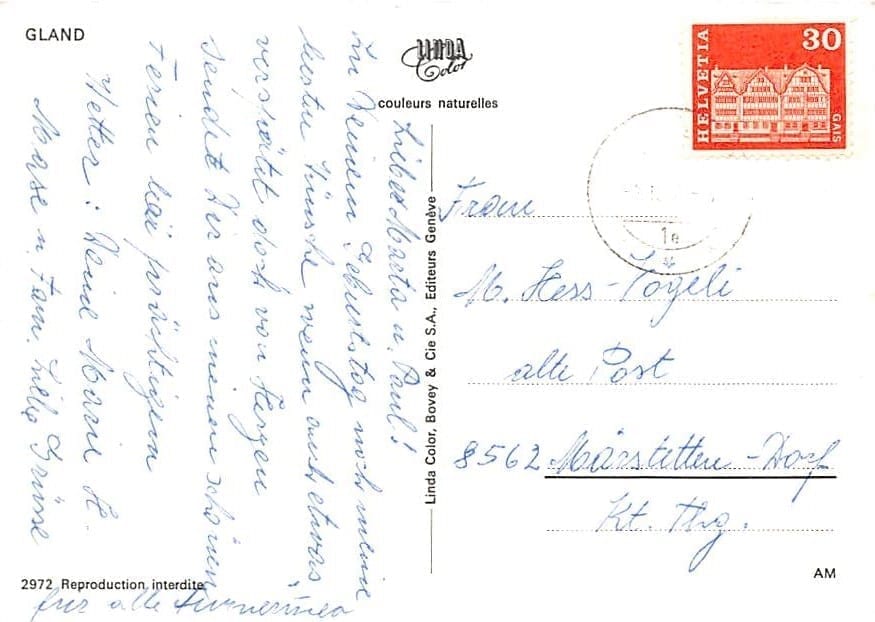 GLAND
LINDA
Color
couleurs naturelles
HELVETIA
30
GAIS
1e
Liebe Marta u. Paul!
Zu Deinem Geburtstag noch meine
besten Wünsche wenn auch etwas
verspätet doch von Herzen
sendet Dir aus meinen schönen
Ferien bei prächtigem
Wetter: Deine Marie H.
u. Fam. liebe Grüsse
für alle
Linda Color, Bovey & Cie S.A., Editeurs Genève
Frau
M. Hess-Vögeli
alte Post
8562 Märstetten-Dorf
Kt. Thg.
2972 Reproduction interdite
AM